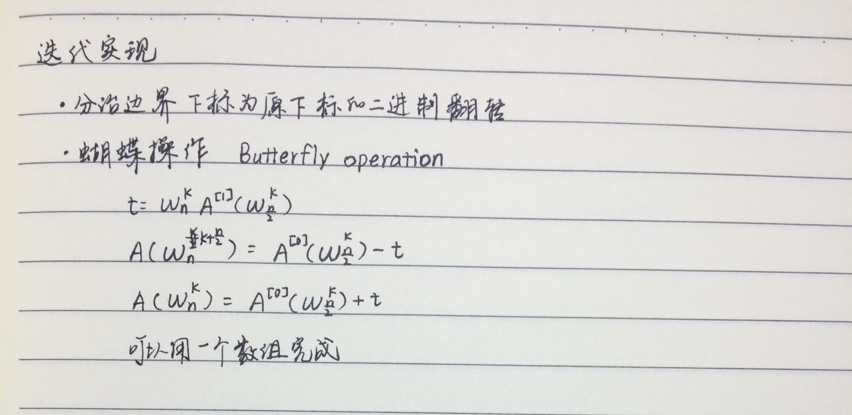 迭代实现
· 分治边界下标为原下标的二进制翻转
· 蝴蝶操作 Butterfly operation
t = ω_n^k A^[1](ω_{n/2}^k)
A(ω_n^{k+n/2}) = A^[0](ω_{n/2}^k) - t
A(ω_n^k) = A^[0](ω_{n/2}^k) + t
可以用一个数组完成